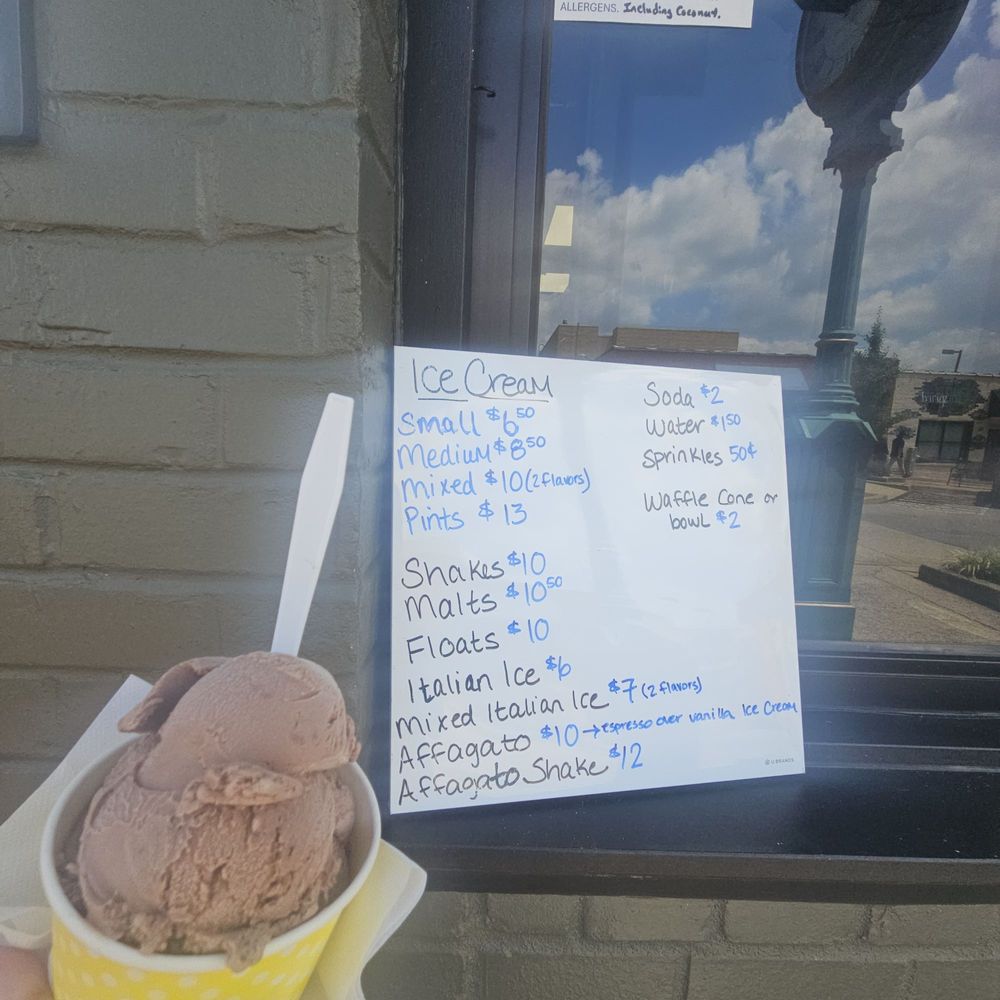 ALLERGENS. Including Coconut.
Ice Cream
Small $6.50
Medium $8.50
Mixed $10 (2 flavors)
Pints $13
Shakes $10
Malts $10.50
Floats $10
Italian Ice $6
Mixed Italian Ice $7 (2 flavors)
Affagato $10 → espresso over vanilla Ice Cream
Affagato Shake $12
Soda $2
Water $1.50
Sprinkles 50¢
Waffle Cone or
bowl $2
U BRANDS